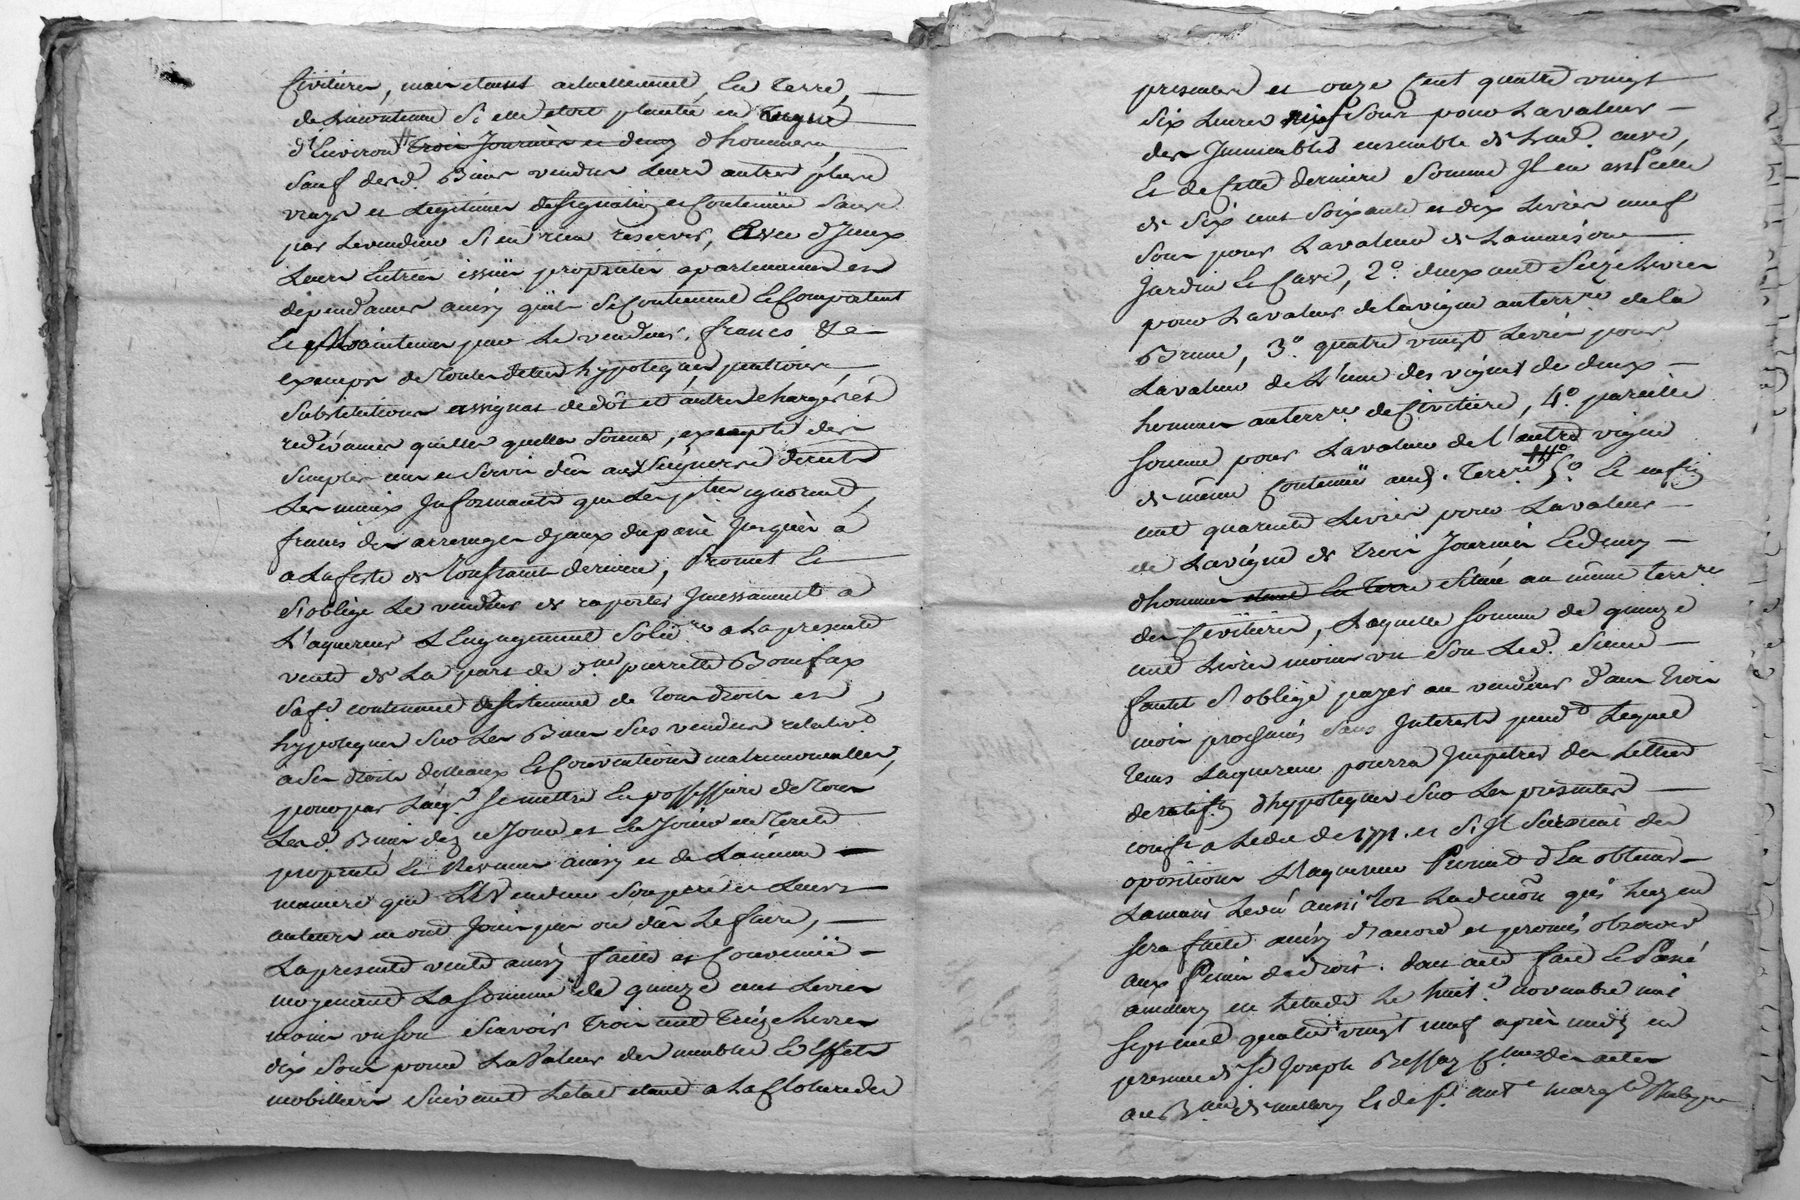 Civitiere, mais etant actuellement En terre,
de la contenue si elle etoit plantée en vigne
d'Environ # trois journées et demy d'hommes,
sauf desd. Biens vendus leurs autres plus
vrays et Legitimes designation et Contenüe sans
par le vendeur s'en rien reserver, avec d'Iceux
Leurs Entrées issües proprietés apartenances et
dependances ainsy qu'ils se Contiennent Et Comportent
Et maintenus par le vendeur, francs &
exempts de toutes dettes hypoteques pentions,
substitutions assignat de dôt et autres charges et
redevances quelles quelles soient, excepté des
simples cens et servis dûs aux seigneurs directs
Les mieux Informants que les pties ignorent,
francs des arrerages d'jceux du passé jusques à
a La feste de Toussaint derniere, Promet Et
s'oblige Le vendeur de raporter Incessament a
L'aquereur L'Engagement solidre a La presente
vente de La part de dme pierrette Bonifax
sa fe contenant desistement de tous droits et
hypoteques sur Les Biens sus vendus relativt
a ses droits dotteaux Et Conventions matrimonialles,
pour par L'aqr se mettre En possession de tous
Lesd. Biens dez ce Jour et En Jouir en toute
proprieté Et Revenus ainsy et de La même
maniere que Le Vendeur son pere et Leurs
auteurs en ont Joui pu ou dûs Le faire,
La presente vente ainsy faitte et Convenüe
moyenant La somme de quinze cent Livres
moins un sou sçavoir trois cent treize Livres
dix sous pour La Valeur des meubles Et Effets
mobilliers suivant L'etat etant a La Cloture des
presentes et onze Cent quatre vingt
six Livres neuf sous pour La valeur
des Immeubles ensemble de Lad. cuve,
Et de Cette derniere somme Il en est 1o Celle
de six cent soixante et dix Livres neuf
sous pour La valeur de La maison
Jardin Et Cave, 2o. deux cent seize Livres
pour La valeur de la vigne au terrre de la
Brune, 3o. quatre vingt Livres pour
La valeur de L'une des vignes de deux
hommes au terrre de Civitiere, 4o. pareille
somme pour La valeur de l'autre vigne
de même Contenüe aud. Terrre 5o. Et enfin
cent quarente Livres pour La valeur
de La vigne de trois Journées Et demy
d'hommes etant En Terre située au même terrre
des Civitieres, Laquelle somme de quinze
cent Livres moins un sou Led. sieur
s'oblige payer au vendeur dans trois
mois prochains sans Interests pendt Lequel
tems L'aquereur pourra Impetrer des Lettres
de ratifon d'hypoteques sur Les presentes
confe a L'edit de 1771. et s'Il survient des
opositions L'aquereur Promet d'En obtenir
La main Levée aussi tot La denôn qui Luy en
sera faitte ainsy d'acord et promis observer
aux Peines de droit. dont acte fait Et Passé
a millery en L'etude Le huit novembre mil
sept cent quatre vingt neuf après midy en
presence de Sr Joseph Bessay des actes
au de millery Et de Sr antne